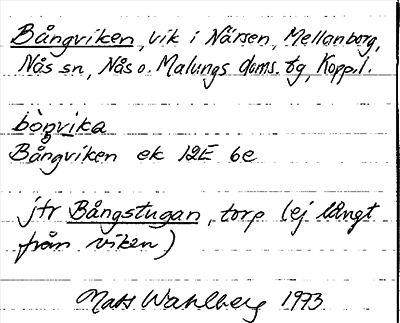 Bångviken, vik i Närsen, Mellanborg,
Nås sn, Nås o. Malungs doms. tg, Kopp.l.
bòŋvika
Bångviken ek 12E 6e
jfr Bångstugan, torp (ej långt
från viken)
Mats Wahlberg 1973